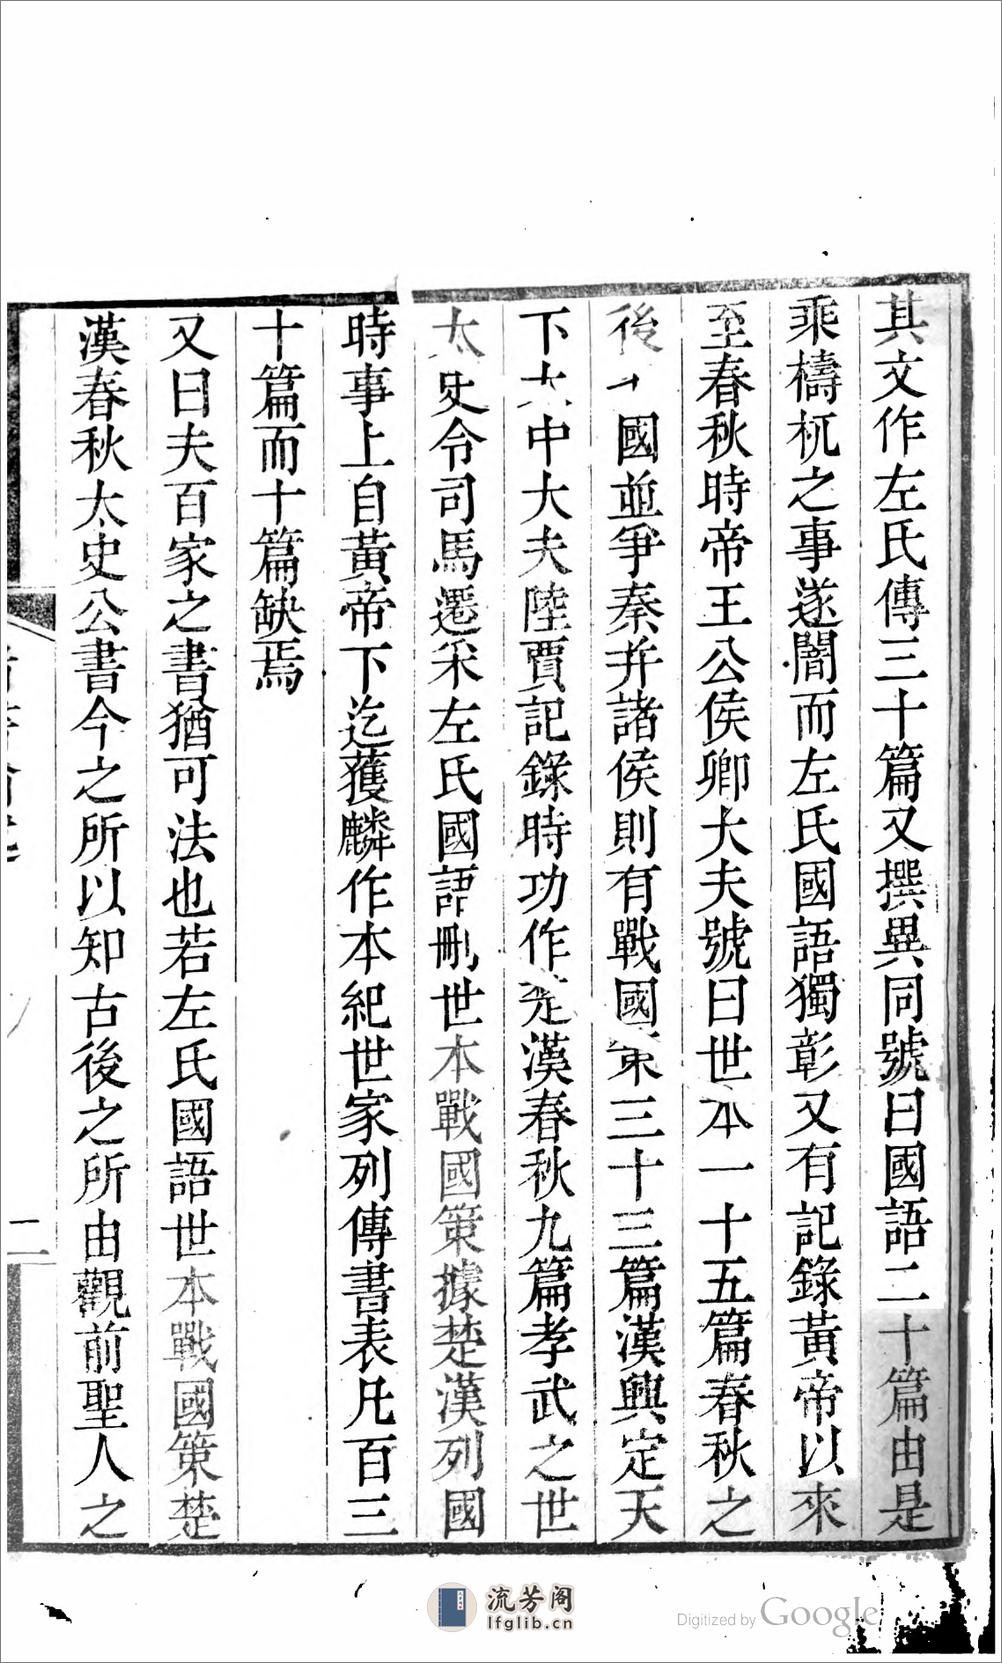 其文作左氏傳三十篇又撰異同號曰國語二十篇由是
乘檮杌之事遂闇而左氏國語獨彰又有記錄黃帝以來
至春秋時帝王公侯卿大夫號曰世本一十五篇春秋之
後七國並爭秦并諸侯則有戰國策三十三篇漢興定天
下太中大夫陸賈記錄時功作楚漢春秋九篇孝武之世
太史令司馬遷采左氏國語刪世本戰國策據楚漢列國
時事上自黃帝下迄獲麟作本紀世家列傳書表凡百三
十篇而十篇缺焉
又曰夫百家之書猶可法也若左氏國語世本戰國策楚
漢春秋太史公書今之所以知古後之所由觀前聖人之
二
流芳阁
lfglib.cn
Digitized by Google